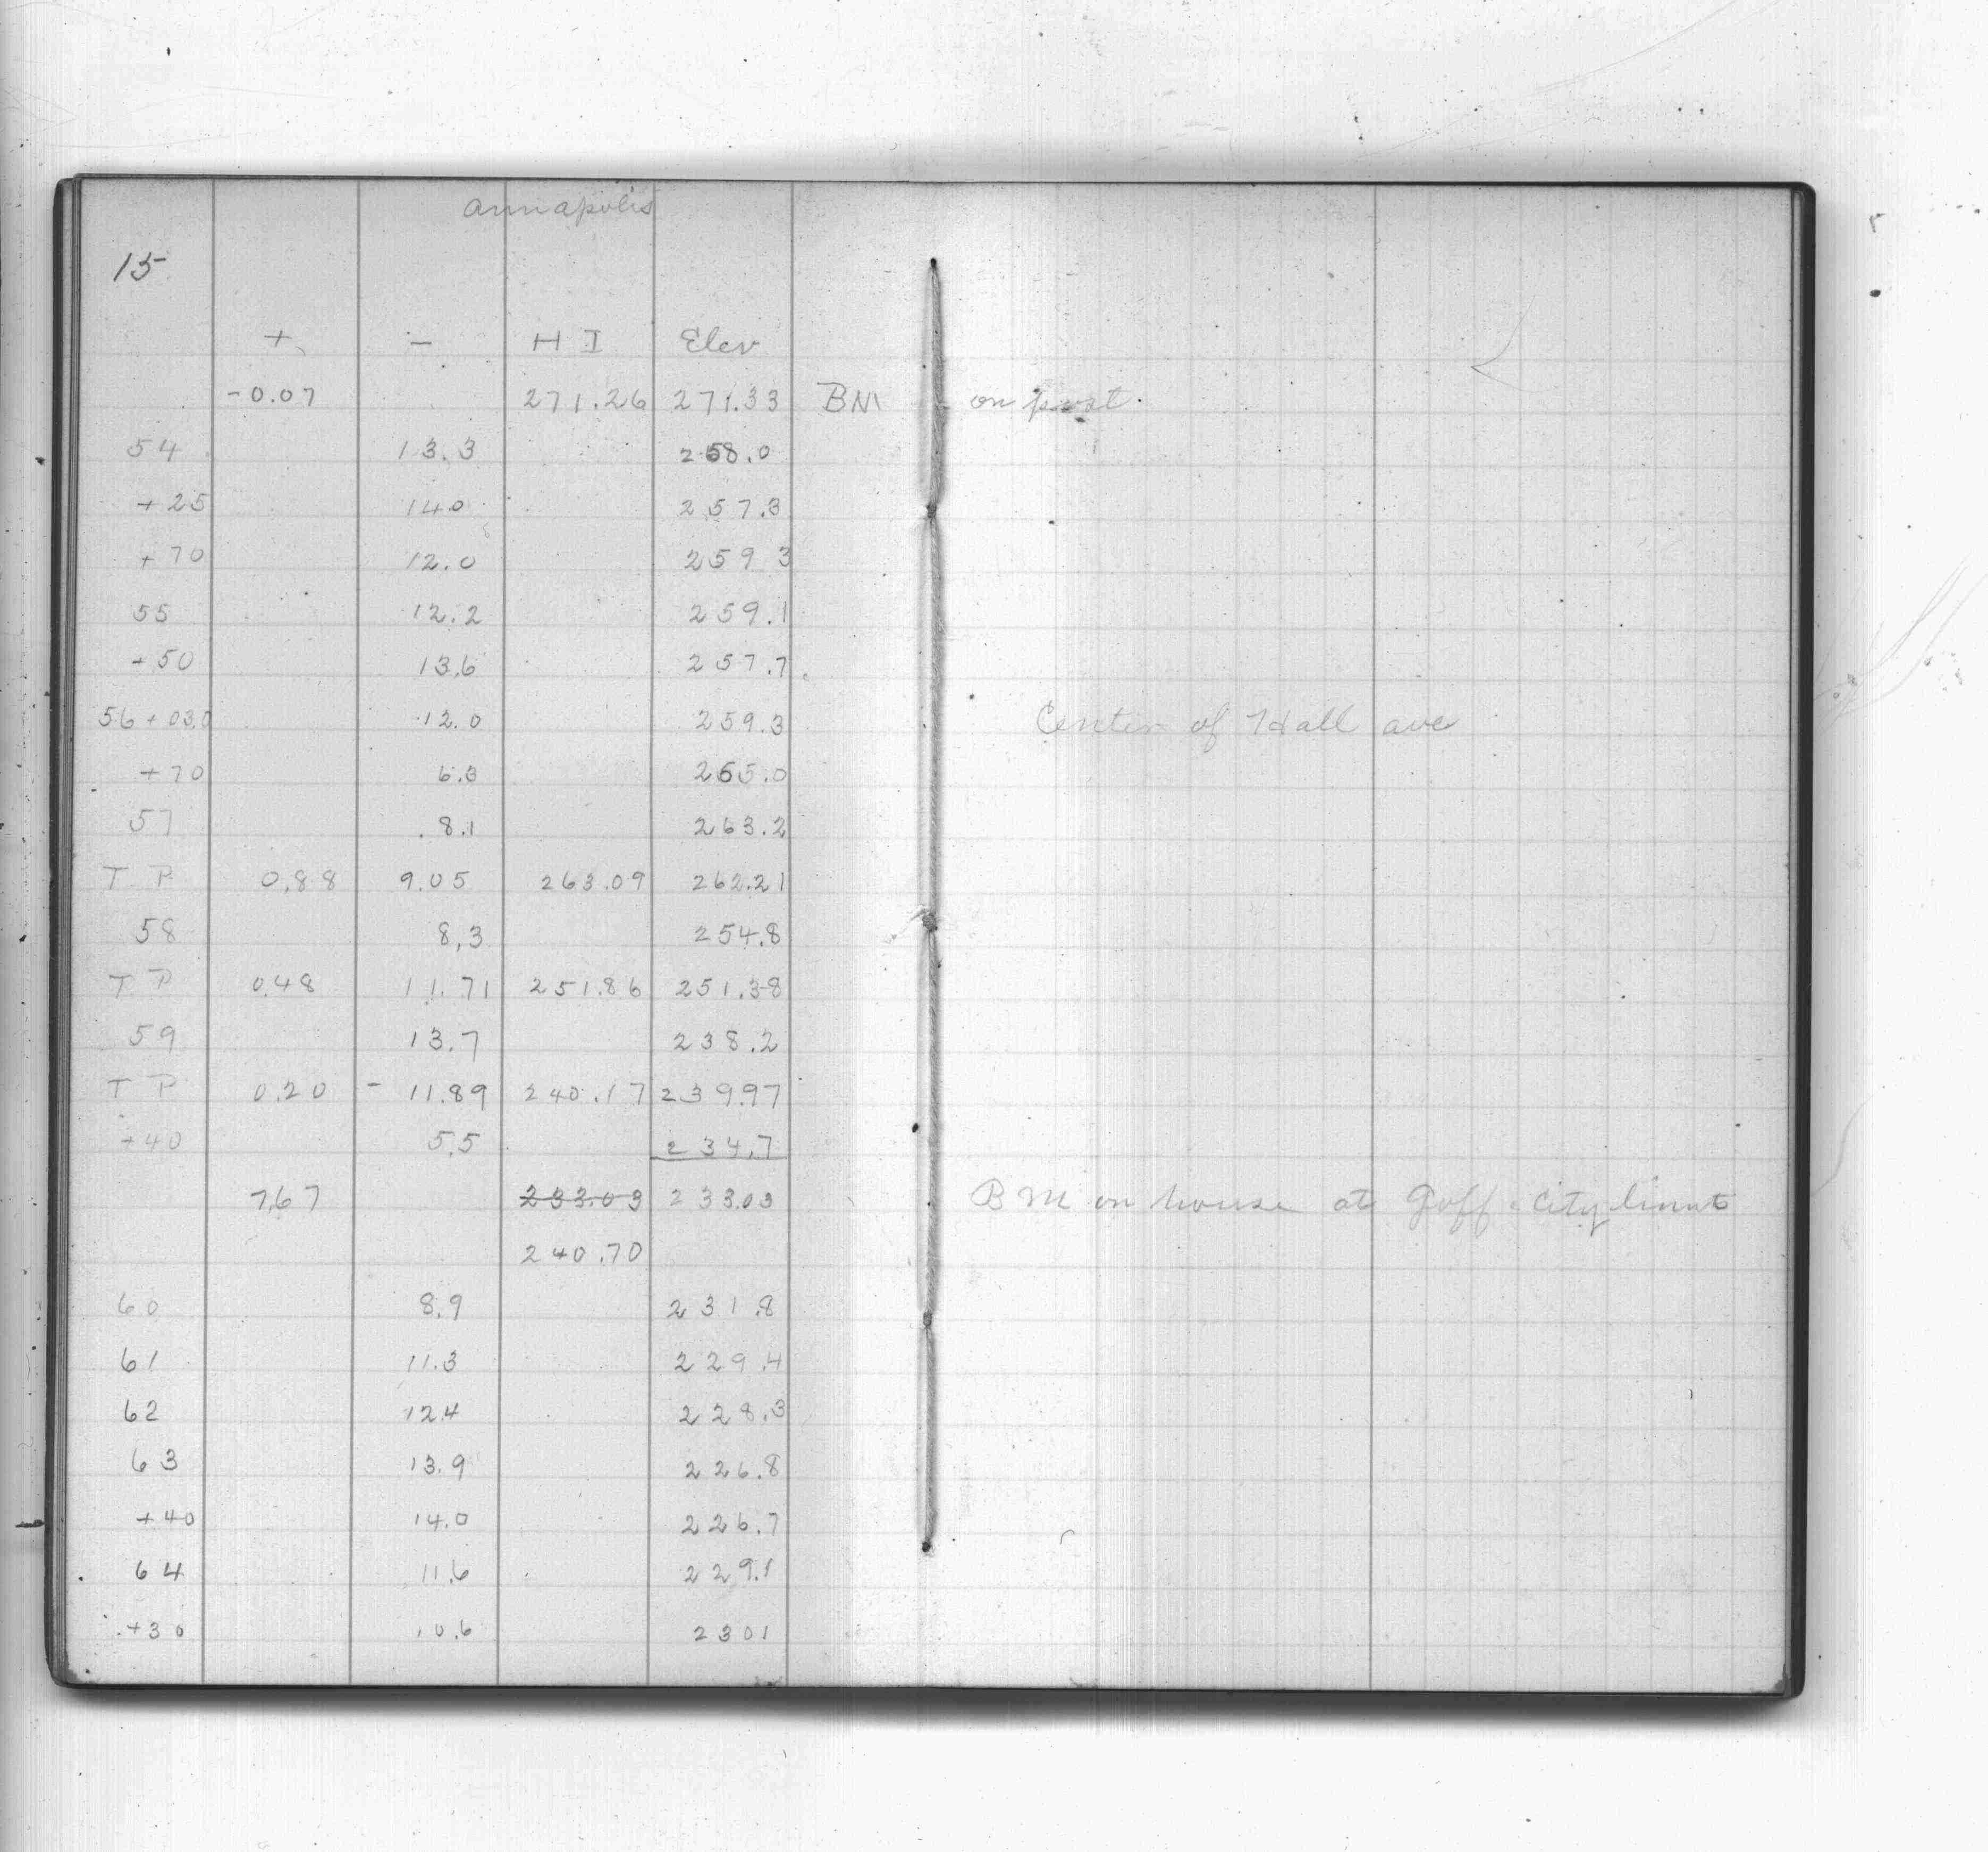 Annapolis
15
+ - H I Elev
-0.07 271.26 271.33 BM on post.
54 13.3 258.0
+25 14.0 257.3
+70 12.0 259 3
55 12.2 259.1
+50 13.6 257.7
56+03.0 12.0 259.3 Center of Hall ave
+70 6.3 265.0
57 8.1 263.2
T P 0.88 9.05 263.09 262.21
58 8.3 254.8
T P 0.48 11.71 251.86 251.38
59 13.7 238.2
T P 0.20 - 11.89 240.17 239.97
+40 5.5 234.7
7.67 233.03 233.03 BM on house at Goff - City limits
240.70
60 8.9 231.8
61 11.3 229.4
62 12.4 228.3
63 13.9 226.8
+40 14.0 226.7
64 11.6 229.1
+30 10.6 2301